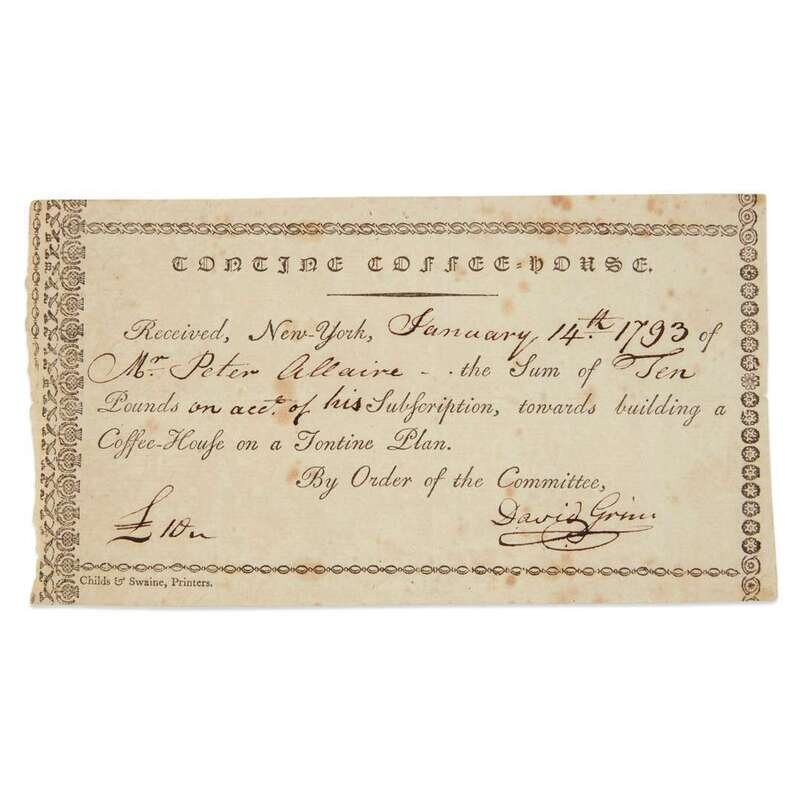 TONTINE COFFEE-HOUSE.
Received, New-York, January, 14.th 1793 of
Mr. Peter Allaire - . the Sum of Ten
Pounds on acct. of his Subſcription, towards building a
Coffee-Houſe on a Tontine Plan.
By Order of the Committee,
£10 David Grim
Childs & Swaine, Printers.